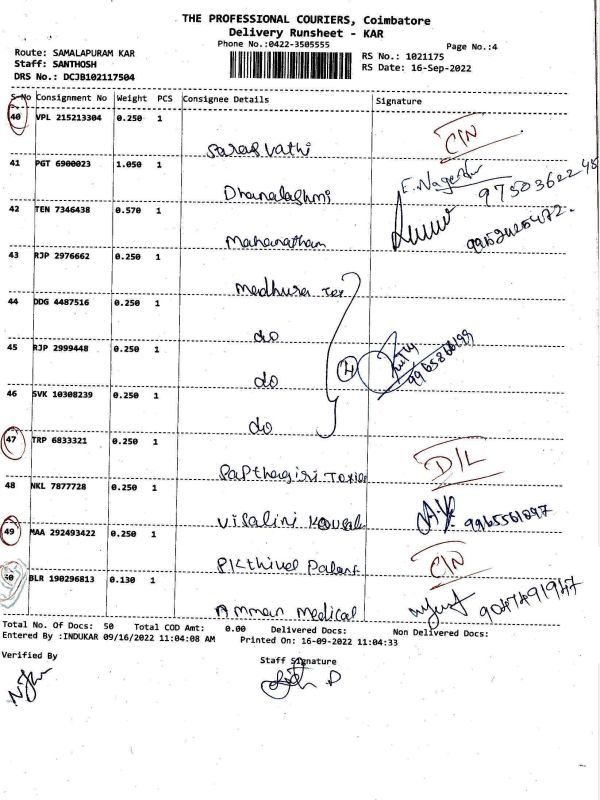 THE PROFESSIONAL COURIERS, Coimbatore
Delivery Runsheet - KAR
Phone No.:0422-3505555
Page No.:4
Route: SAMALAPURAM KAR
Staff: SANTHOSH
DRS No.: DCJB102117504
RS No.: 1021175
RS Date: 16-Sep-2022
S.No Consignment No Weight PCS Consignee Details Signature
40 VPL 215213304 0.250 1
Saraswathi C/N
41 PGT 6900023 1.050 1
Dhanalakshmi E. Nagesh 9750362248
42 TEN 7346438 0.570 1
Mahanatham
43 RJP 2976662 0.250 1
Madhura Tex
44 DDG 4487516 0.250 1
do
45 RJP 2999448 0.250 1
do 4
46 SVK 10308239 0.250 1
do
47 TRP 6833321 0.250 1
D/L
48 NKL 7877728 0.250 1
Visalini 9965561097
49 MAA 292493422 0.250 1
C/N
50 BLR 190296813 0.130 1
Amman Medical 9047491947
Total No. Of Docs: 50 Total COD Amt: 0.00 Delivered Docs: Non Delivered Docs:
Entered By :INDUKAR 09/16/2022 11:04:08 AM Printed On: 16-09-2022 11:04:33
Verified By
Staff Signature